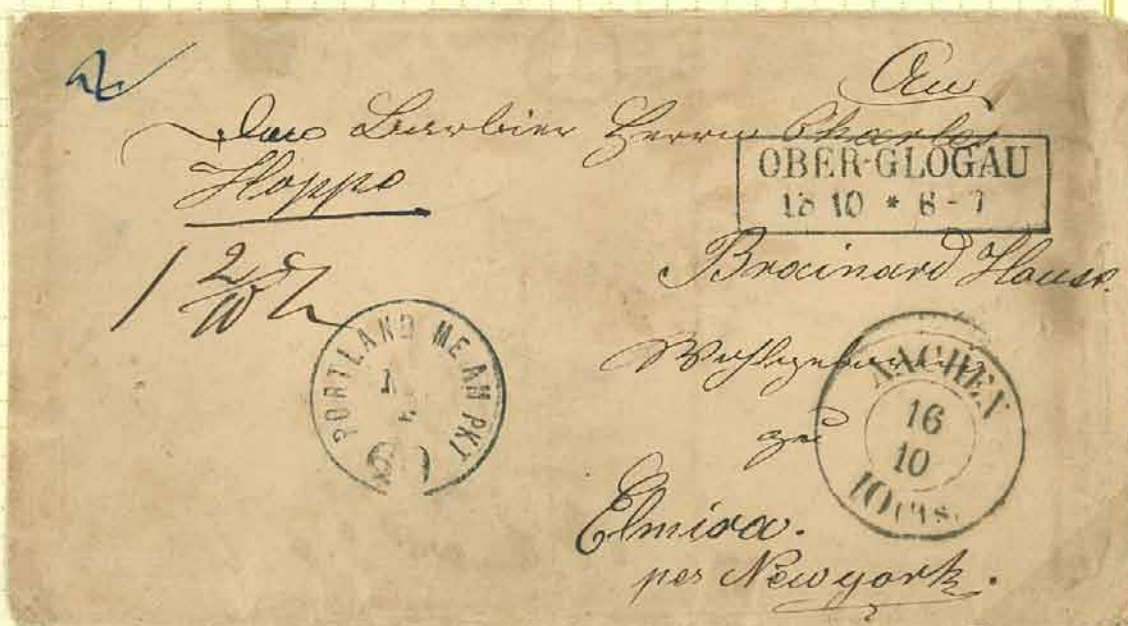 An
den Barbier Herrn Charles
Hoppe
OBER-GLOGAU
15 10 * 6-7
Brainard House.
1 2/10
PORTLAND ME AM PKT
Wohlgeboren
zu
AACHEN
16
10
10 cts.
Elmira.
per New york.